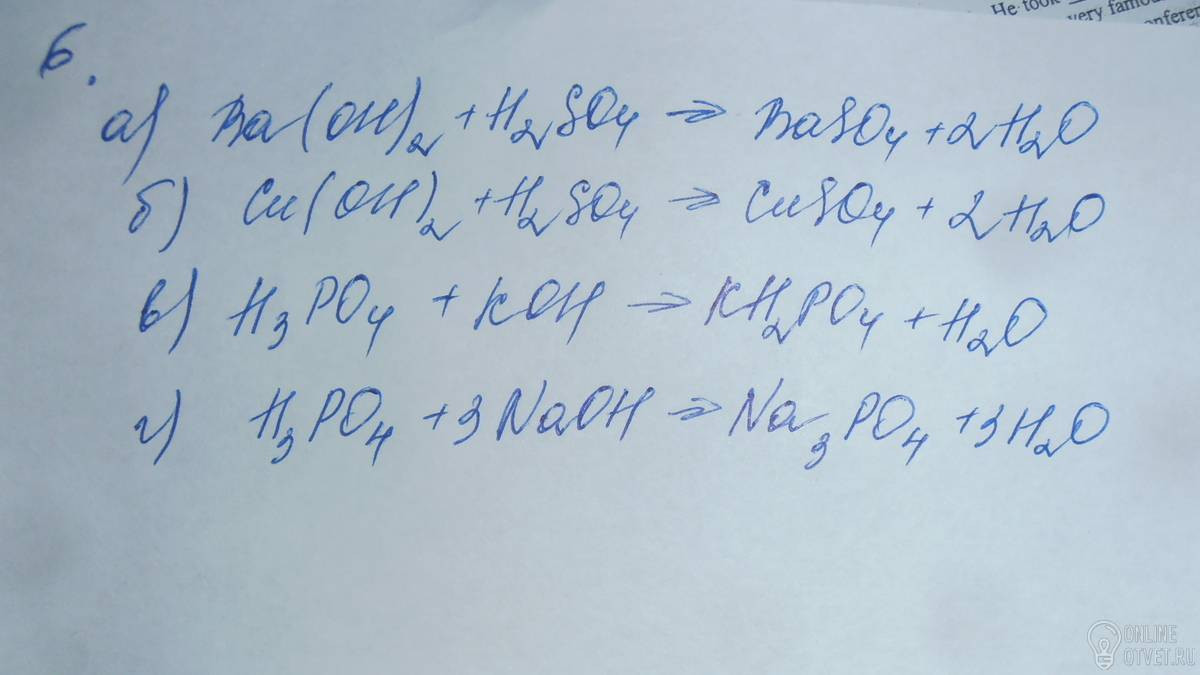 He took
very famou
onferen
6.
а) Ba(OH)₂ + H₂SO₄ → BaSO₄ + 2H₂O
б) Cu(OH)₂ + H₂SO₄ → CuSO₄ + 2H₂O
в) H₃PO₄ + KOH → KH₂PO₄ + H₂O
г) H₃PO₄ + 3NaOH → Na₃PO₄ + 3H₂O
ONLINE
OTVET.RU